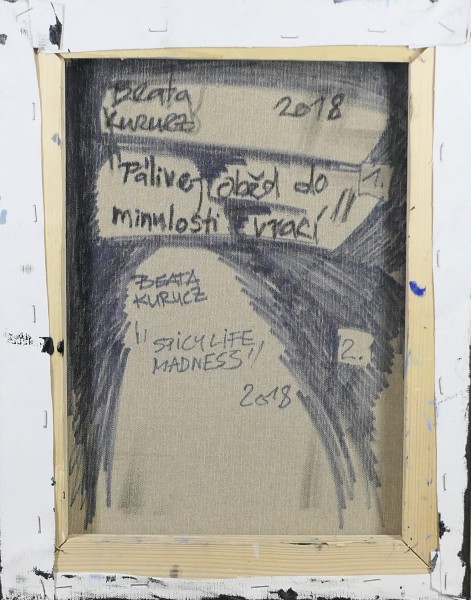 Beata
Kurucz 2018
"Pálivej oběd do 1.
minulosti vrací"
BEATA
KURUCZ
"SPICY LIFE
MADNESS" 2.
2018